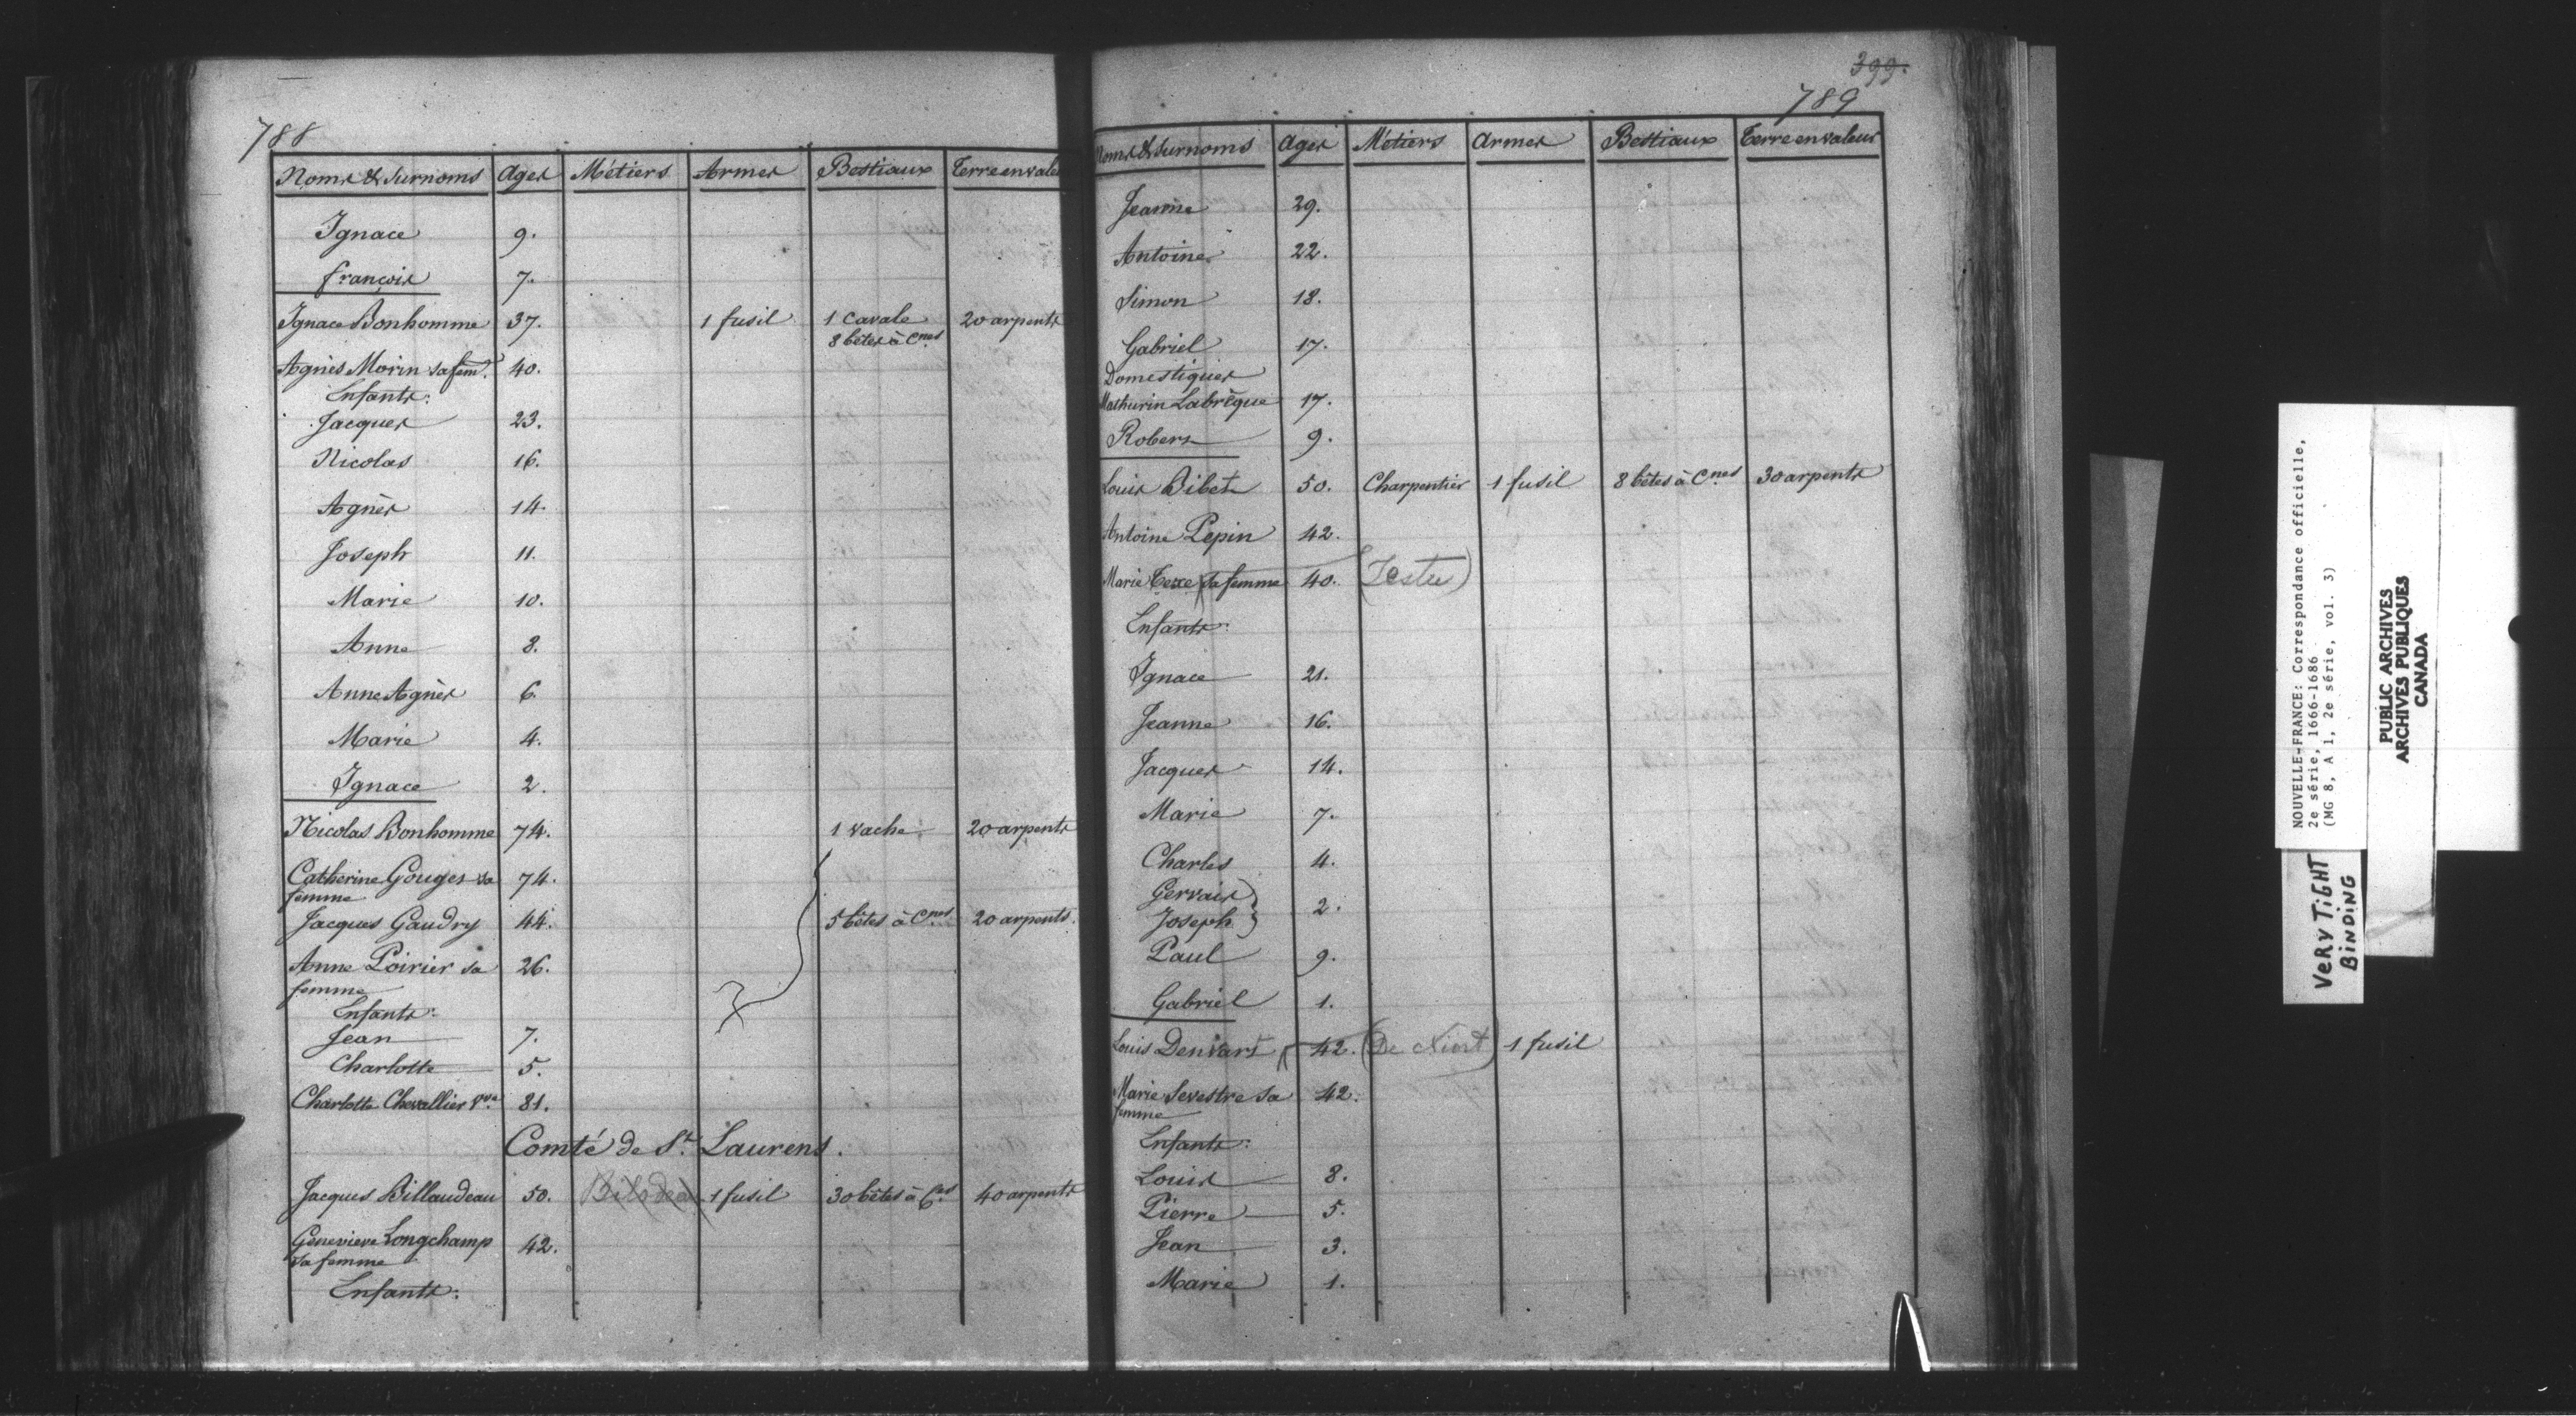 788
Noms & Surnoms Ages Métiers Armes Bestiaux Terre en vale
Ignace 9.
françois 7.
Ignace Bonhomme 37. 1 fusil 1 Cavale 20 arpents
8 bêtes à Cnes
Agnès Morin sa fem. 40.
Enfants:
Jacques 23.
Nicolas 16.
Agnès 14.
Joseph 11.
Marie 10.
Anne 8.
Anne Agnès 6.
Marie 4.
Ignace 2.
Nicolas Bonhomme 74. 1 vache 20 arpents
Catherine Gouges sa 74.
femme
Jacques Gaudry 44. 5 bêtes à Cnes 20 arpents.
Anne Poirier sa 26.
femme
Enfants:
Jean 7.
Charlotte 5.
Charlotte Chevallier Vve 81.
Comté de St. Laurens.
Jacques Billaudeau 50. Bilodeau 1 fusil 30 bêtes à Ces 40 arpents
Genevieve Longchamp 42.
sa femme
Enfants:
399.
789
Noms & Surnoms Ages Métiers Armes Bestiaux Terre en valeur
Jeanne 29.
Antoine 22.
Simon 18.
Gabriel 17.
Domestiques
Mathurin Labrèque 17.
Robert 9.
Louis Bibet 50. Charpentier 1 fusil 8 bêtes à Cnes 30 arpents
Antoine Pepin 42.
Marie Texe sa femme 40. (Testu)
Enfants:
Ignace 21.
Jeanne 16.
Jacques 14.
Marie 7.
Charles 4.
Gervais
Joseph } 2.
Paul 9.
Gabriel 1.
Louis Denvart 42. (De Niort) 1 fusil
Marie Sevestre sa 42.
femme
Enfants:
Louis 8.
Pierre 5.
Jean 3.
Marie 1.
NOUVELLE-FRANCE: Correspondance officielle,
2e série, 1666-1686
(MG 8, A 1, 2e série, vol. 3)
VERY TIGHT
BINDING
PUBLIC ARCHIVES
ARCHIVES PUBLIQUES
CANADA